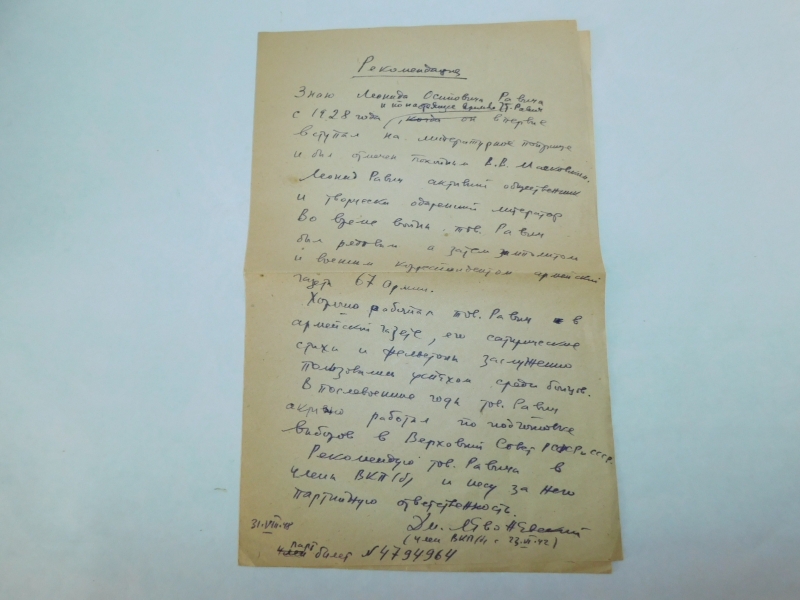 Рекомендация
Знаю Леонида Осиповича Равича
с 1928 года, когда он впервые
вступал на литературное поприще
и был отмечен покойным В.В. Маяковским.
Леонид Равич активный общественник
и творчески одаренный литератор
Во время войны тов. Равич
был рядовым а затем
и военным корреспондентом армейской
газеты 67 Армии.
Хорошо работал тов. Равич в
армейской газете, его сатирические
стихи и фельетоны заслуженно
пользовались успехом среди бойцов.
В послевоенные годы тов. Равич
активно работал по подготовке
выборов в Верховный Совет РСФСР и СССР.
Рекомендую тов. Равича в
члены ВКП(б) и несу за него
партийную ответственность.
31.VIII.48
Дм.
(член ВКП(б) с 23.VI.42)
парт билет N 4794964